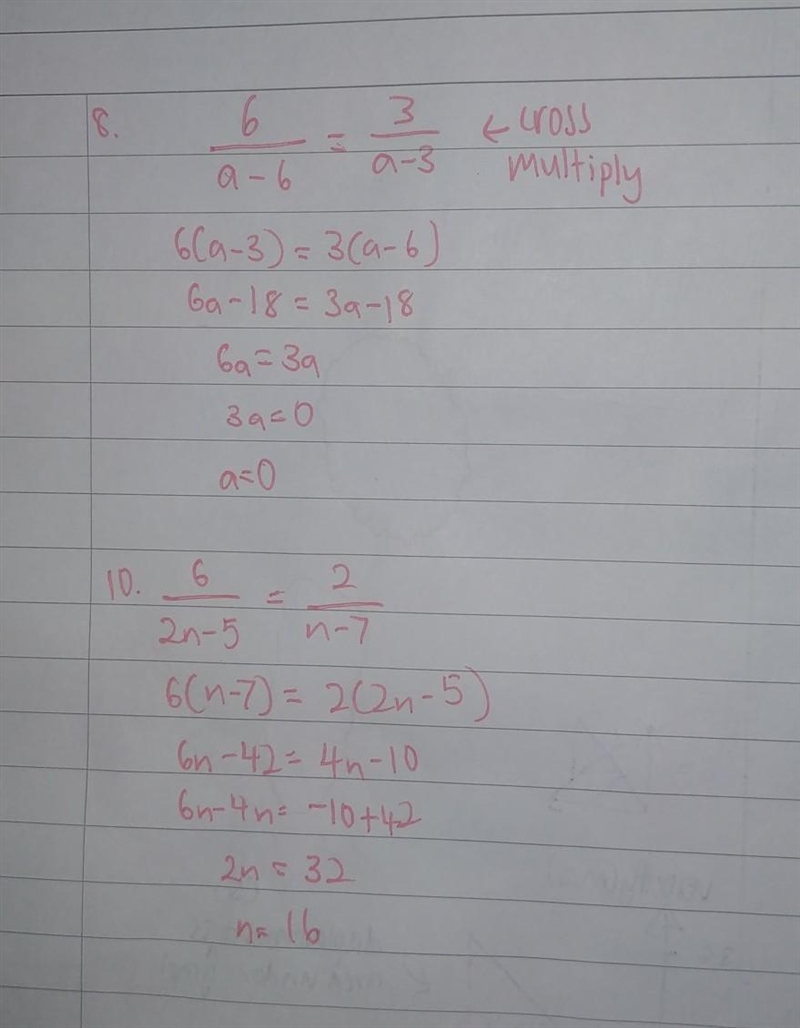 8. 6/(a-6) = 3/(a-3) ← cross
multiply
6(a-3) = 3(a-6)
6a-18 = 3a-18
6a = 3a
3a = 0
a = 0
10. 6/(2n-5) = 2/(n-7)
6(n-7) = 2(2n-5)
6n-42 = 4n-10
6n-4n = -10+42
2n = 32
n = 16